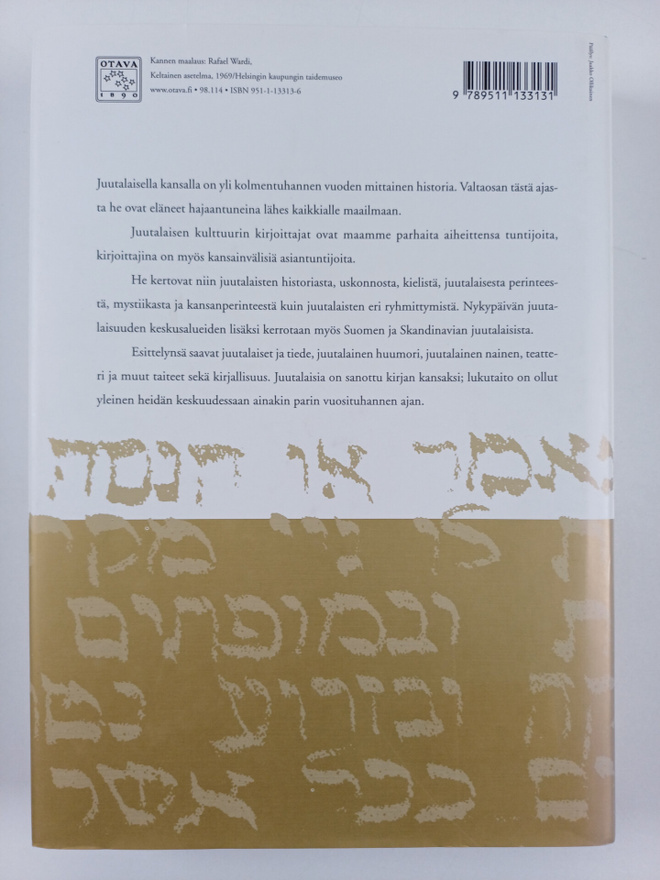 OTAVA
1890
Kannen maalaus: Rafael Wardi,
Keltainen asetelma, 1969/Helsingin kaupungin taidemuseo
www.otava.fi • 98.114 • ISBN 951-1-13313-6
9 789511 133131
Päällys: Jaakko Ollikainen
Juutalaisella kansalla on yli kolmentuhannen vuoden mittainen historia. Valtaosan tästä ajas-
ta he ovat eläneet hajaantuneina lähes kaikkialle maailmaan.
Juutalaisen kulttuurin kirjoittajat ovat maamme parhaita aiheittensa tuntijoita,
kirjoittajina on myös kansainvälisiä asiantuntijoita.
He kertovat niin juutalaisten historiasta, uskonnosta, kielistä, juutalaisesta perintees-
tä, mystiikasta ja kansanperinteestä kuin juutalaisten eri ryhmittymistä. Nykypäivän juuta-
laisuuden keskusalueiden lisäksi kerrotaan myös Suomen ja Skandinavian juutalaisista.
Esittelynsä saavat juutalaiset ja tiede, juutalainen huumori, juutalainen nainen, teatte-
ri ja muut taiteet sekä kirjallisuus. Juutalaisia on sanottu kirjan kansaksi; lukutaito on ollut
yleinen heidän keskuudessaan ainakin parin vuosituhannen ajan.
או הנסה
ובמופתים
ובזרוע
ככל אשר